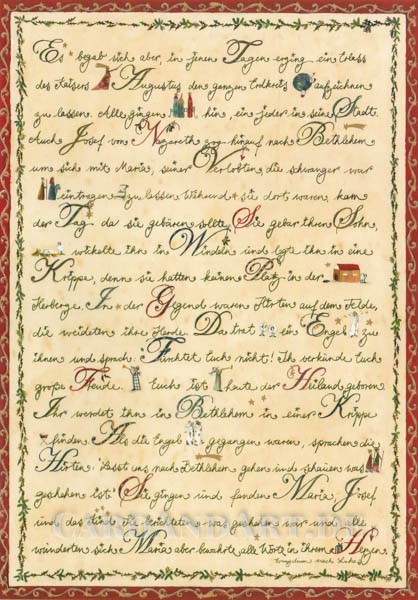 Es begab sich aber, in jenen Tagen erging ein Erlass
des Kaisers Augustus den ganzen Erdkreis aufzeichnen
zu lassen. Alle gingen hin, ein jeder in seine Stadt.
Auch Josef von Nazareth zog hinauf nach Bethlehem
um sich mit Maria, seiner Verlobten, die schwanger war
eintragen zu lassen. Während sie dort waren, kam
der Tag da sie gebären sollte. Sie gebar ihren Sohn,
wickelte ihn in Windeln und legte ihn in eine
Krippe, denn sie hatten keinen Platz in der
Herberge. In der Gegend waren Hirten auf dem Felde,
die weideten ihre Herde. Da trat ein Engel zu
ihnen und sprach: Fürchtet euch nicht! Ihr verkünde euch
große Freude. euch ist heute der Heiland geboren
Ihr werdet ihn in Bethlehem in einer Krippe
finden. Als die Engel gegangen waren, sprachen die
Hirten: Lasst uns nach Bethlehem gehen und schauen was
geschehen ist! Sie gingen und fanden Maria, Josef
und das Kind. Sie berichteten was geschehen war und alle
wunderten sich. Maria aber bewahrte alle Worte in ihrem Herzen.
Evangelium nach Lukas
CARTANDART.DE